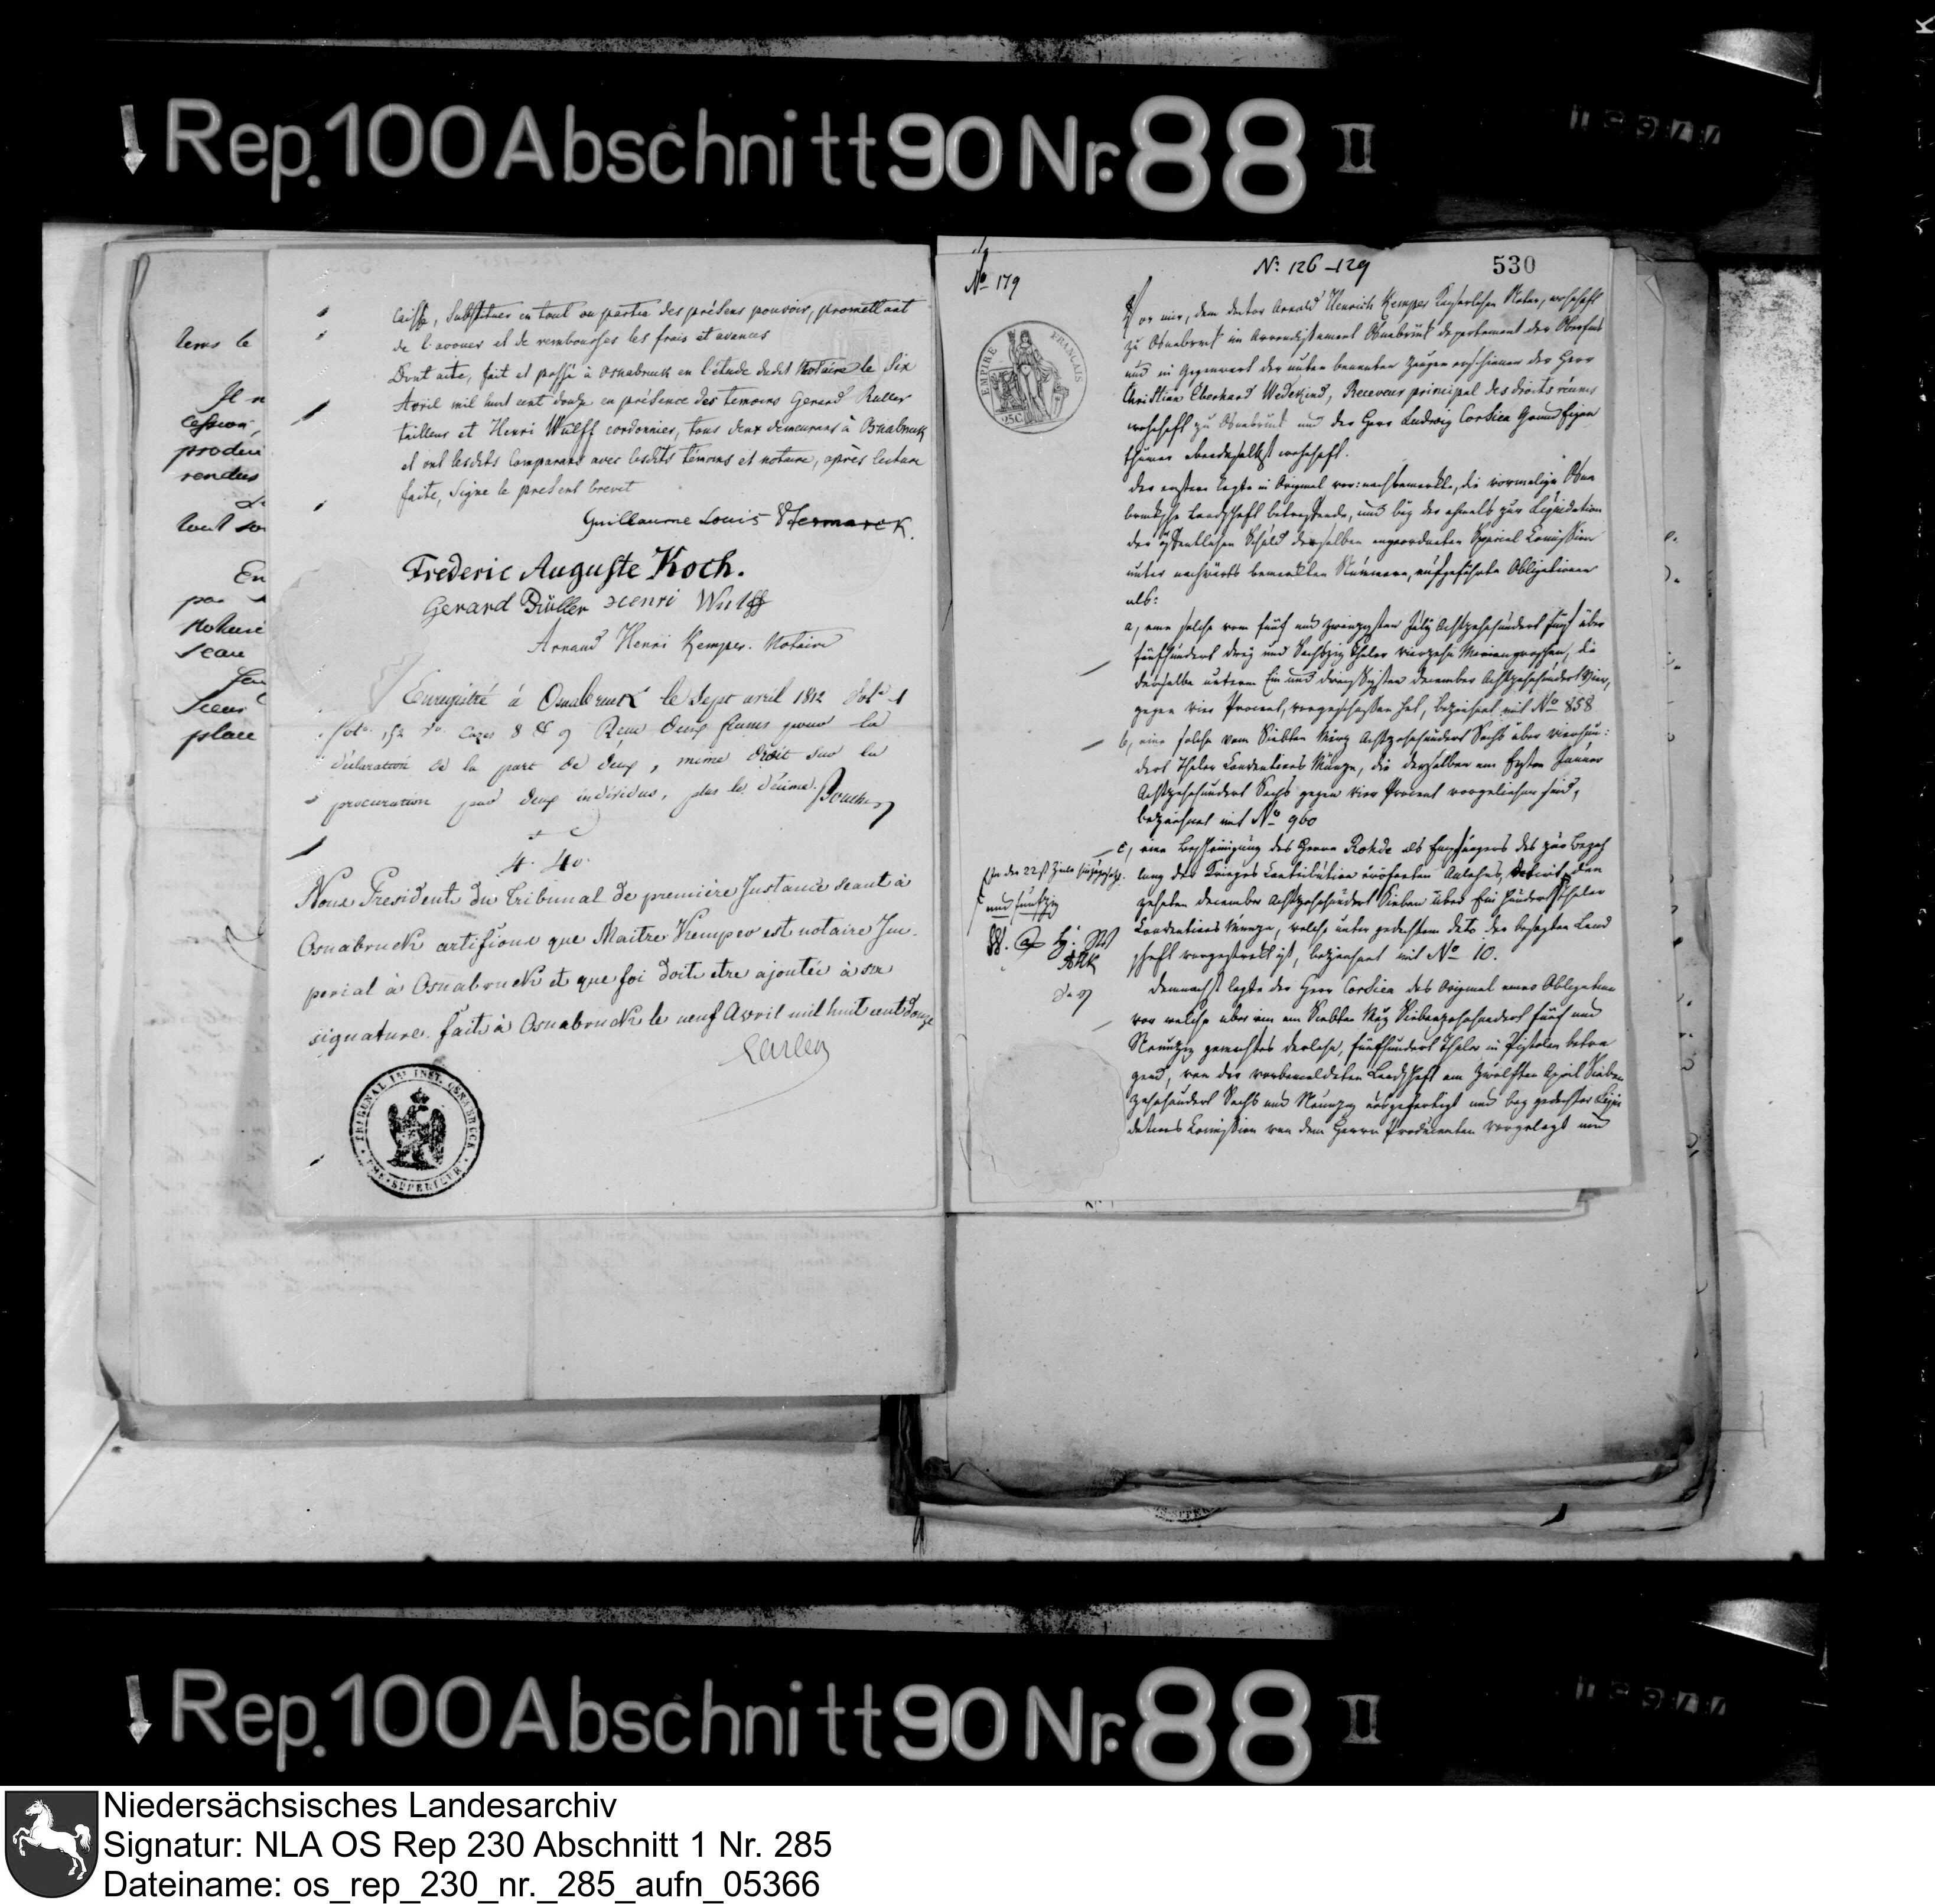 Rep. 100 Abschnitt 90 Nr. 88 II
tems le
Il n
Cession,
produi
rendus
tout so
En
pa
Notaire
place
caisse, Substituer en tout ou partie des présens pouvoir, promettant
de l'avouer et de rembourser les frais et avances
Dont acte, fait et passé à Osnabruck en l'étude dudit Notaire le Six
Avril mil huit cent douze en présence des temoins Gerard Ruller
tailleur et Henri Wulff cordonnier, tous deux demeurans à Osnabruck
et ont lesdits Comparans avec lesdits témoins et notaire, après lecture
faite, Signe le présent brevet
Guillaume Louis
Frederic Auguste Koch.
Gerard Rüller Henri Wulff
Arnaud Henri Kemper. Notaire
Enregistré à Osnabruck le Sept avril 1812
Cases 8 & 9 Reçu deux francs pour la
déclaration de la part de deux, même droit sur la
procuration par deux individus, plus le décime.
4. 40.
Nous President du Tribunal de premiere Instance seant à
Osnabruck certifions que Maitre Kemper est notaire Im-
perial à Osnabruck et que foi doit etre ajoutée à sa
signature. fait à Osnabruck le neuf Avril mil huit cent douze
TRIBUNAL IM. INST. OSNABRUCK
EMS-SUPERIEUR
No 179
N: 126-129
530
EMPIRE FRANÇAIS
25 C
Vor mir, dem doctor Arnold Henrich Kemper Kayserlichen Notar, wohnhaft
zu Osnabrück im Arrondissement Osnabrück departement der Oberems
und in Gegenwart der unten benannten Zeugen erschienen der Herr
Christian Eberhard Wedekind, Receveur principal des droits réunis
wohnhaft zu Osnabrück und der Herr Ludwig Corsica Grund Eigen
thümer ebendaselbst wohnhaft.
der erstere legte in Original vor: nachbemerkte, die vormalige Osna
brücksche Landschaft betreffende, und bey der ehemals zur Liquidation
der öffentlichen Schuld derselben angeordneten Special Comission
unter nachwärts bemerkten Nummern, aufgeführte Obligationen
als:
a, eine solche vom fünf und zwanzigsten July Achtzehnhundert fünf über
fünfhundert drey und Sechszig Thaler vierzehn Mariengroschen, die
derselbe unterm Ein und dreissigsten december Achtzehnhundert vier,
gegen vier Procent, vorgeschossen hat, bezeichnet mit No 858
b, eine solche vom Siebten März Achtzehnhundert Sechs über vierhun-
dert Thaler Conventions Münze, die derselben am Ersten Januar
Achtzehnhundert Sechs gegen vier Procent vorgeliehen sind,
bezeichnet mit No 960
c, eine Bescheinigung des Herrn Rohde als Empfängers des zur Bezah
lung der Krieges Contribution eröfneten Anlehns, datirt den
zehnten december Achtzehnhundert Sieben über Ein hundert Thaler
Conventions Münze, welche unter gedachtem dato der besagten Land
schaft vorgestreckt ist, bezeichnet mit No 10.
und fünfzig
AHK
demnachst legte der Herr Corsica das Original einer Obligation
vor welche über ein am Siebten May Siebenzehnhundert fünf und
Neunzig gemachtes Darlehn, fünfhundert Thaler in Pistolen betra
gend, von der vorbemeldeten Landschaft am zwölften April Sieben
zehnhundert Sechs und Neunzig ausgefertigt und bey gedachter Liqui
dations Comission von dem Herrn Producenten vorgelegt und
Rep. 100 Abschnitt 90 Nr. 88 II
Niedersächsisches Landesarchiv
Signatur: NLA OS Rep 230 Abschnitt 1 Nr. 285
Dateiname: os_rep_230_nr._285_aufn_05366